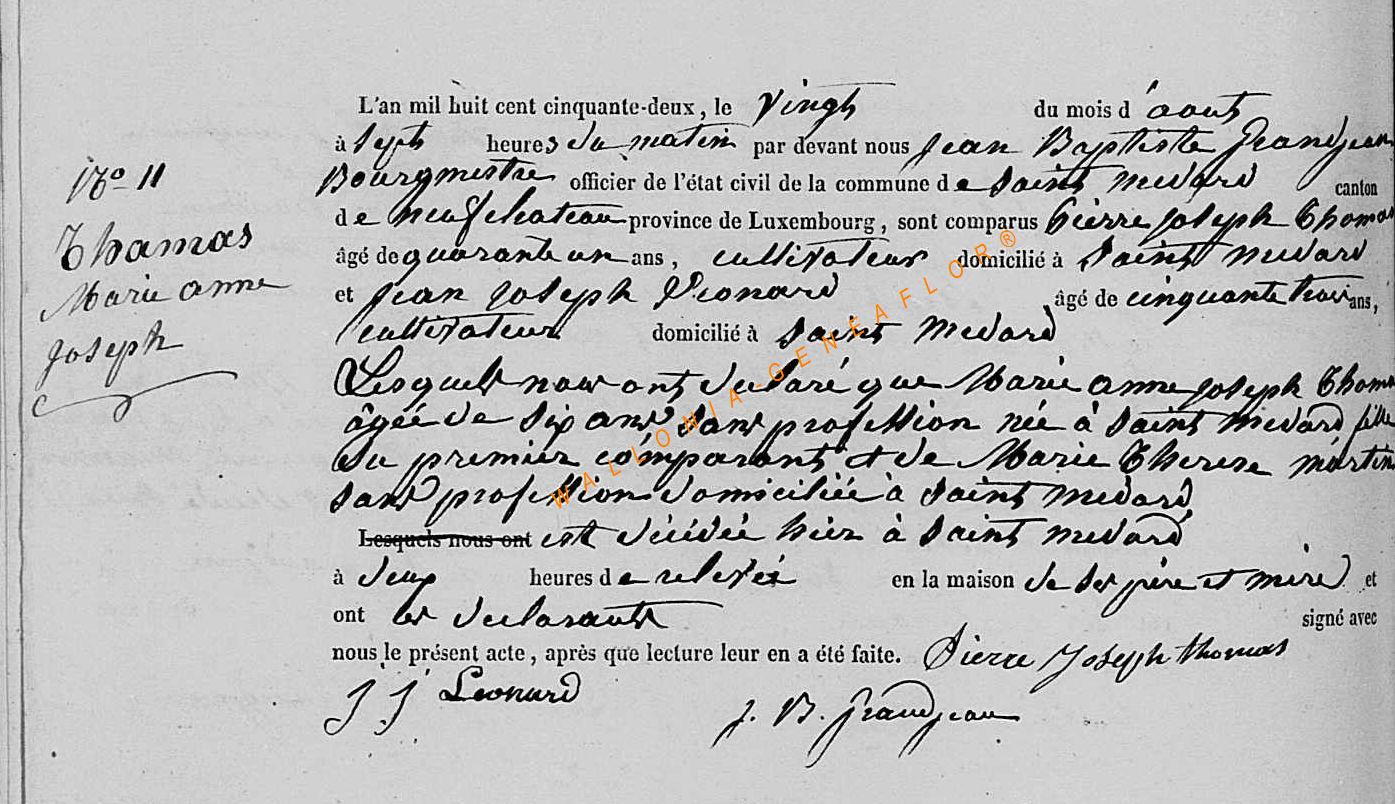 L'an mil huit cent cinquante-deux, le Vingt du mois d'aout
à Sept heures du matin par devant nous Jean Baptiste Grandjean
Bourgmestre officier de l'état civil de la commune de Saint Medard canton
de neufchateau province de Luxembourg, sont comparus Pierre Joseph Thomas
âgé de quarante un ans, cultivateur domicilié à Saint Medard
et Jean Joseph Léonard âgé de cinquante trois ans,
cultivateur domicilié à Saint Medard
Lesquels nous ont déclaré que Marie anne joseph Thomas
âgée de six ans sans profession née à Saint Medard fille
du premier comparant et de Marie Therese martin
sans profession domiciliée à Saint Medard
Lesquels nous ont est décédée hier à Saint Medard
à deux heures de relevée en la maison de ses père et mère et
ont les declarants signé avec
nous le présent acte, après que lecture leur en a été faite. Pierre Joseph thomas
J J Leonard
J. B. Grandjean
No 11
Thamas
Marie anne
Joseph
WALLONIA-GENEAFLOR®